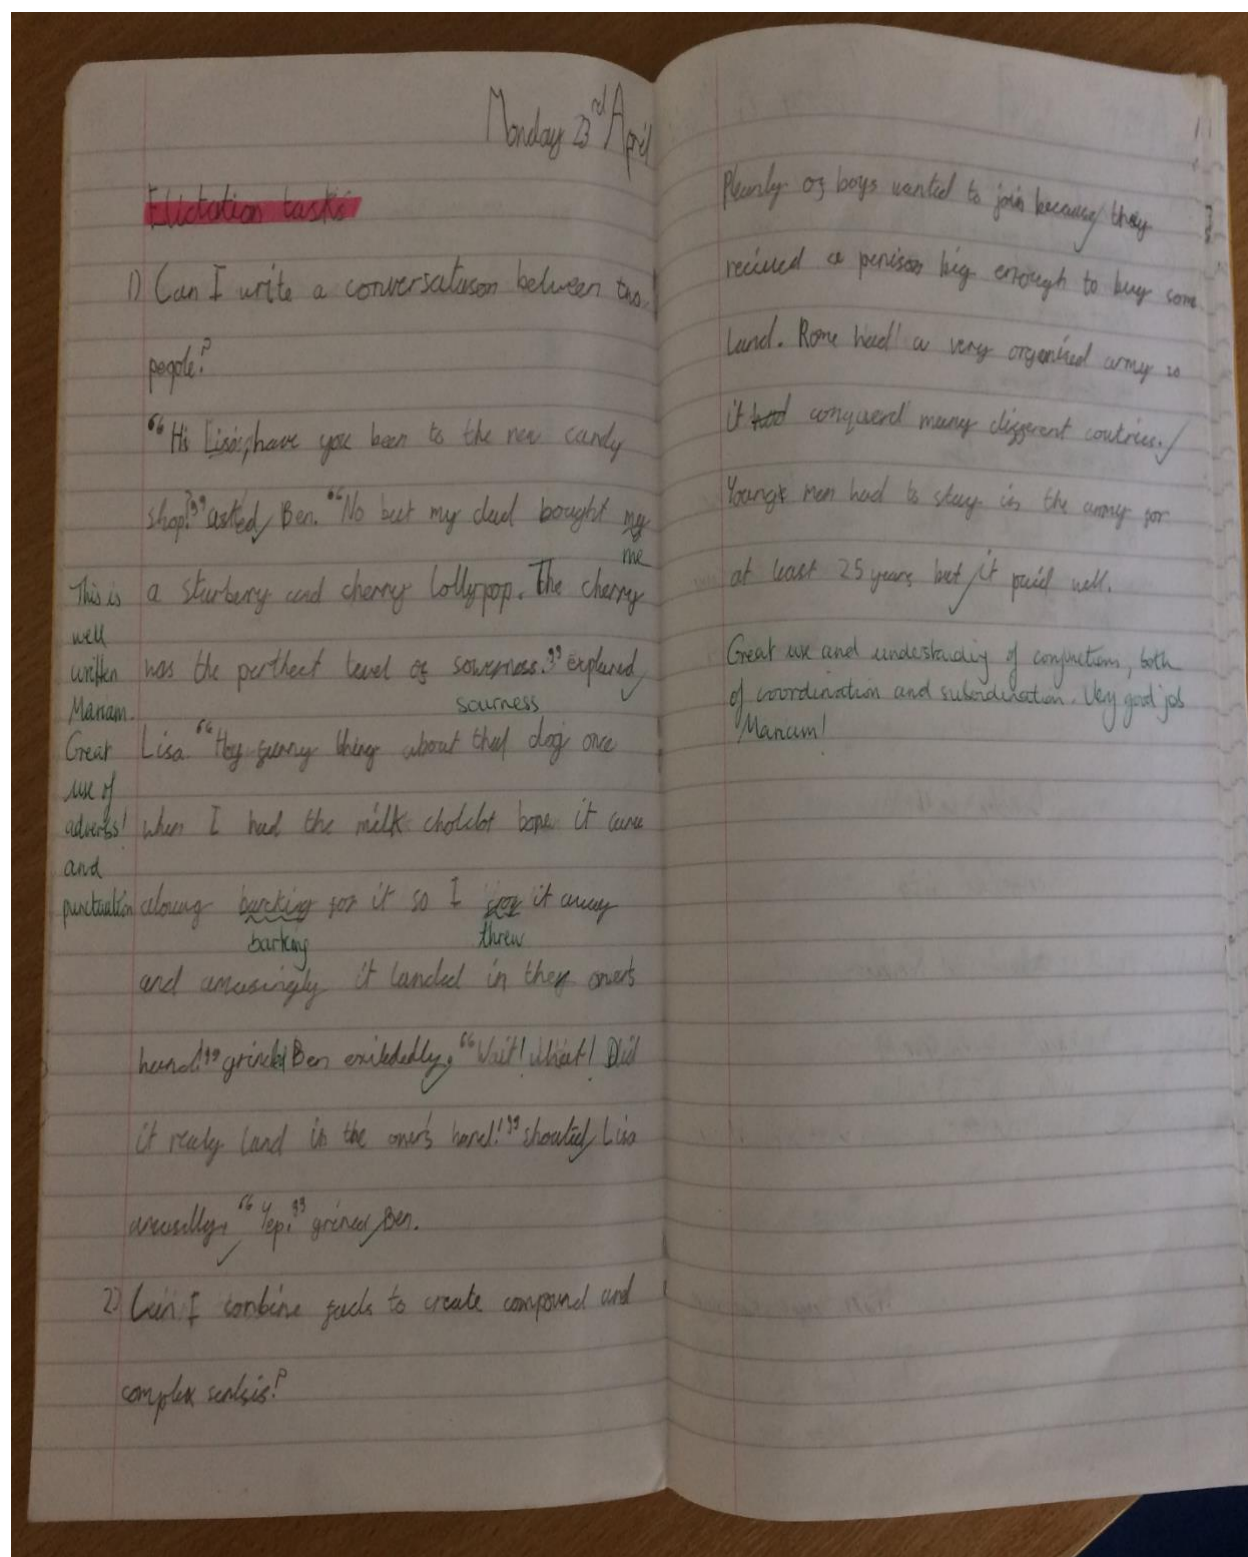 Monday 23rd April
Elictation tasks
1) Can I write a conversatason between two
pegole?
"Hi Lisa, have you been to the new candy
shop?" asked Ben. "No but my dad bought my
me
a sturbery and cherry Lollypop. The cherry
was the perthect level of sowerness." explained
sourness
Lisa. "Hey funny thing about that dog once
when I had the milk choldot bone it came
alowng barcking for it so I it away
barking threw
and amusingly it landed in they oner's
hand!" grined Ben exitedly. "Wait! What! Did
it realy land in the oner's hand!" shouted Lisa
amusedly. "Yep." grined Ben.
2) Can I combine facts to create compound and
complex sentsis?
This is
well
written
Mariam.
Great
use of
adverbs!
and
punctuation
Pleanly of boys wanted to join because they
recieved a penison big enough to buy some
land. Rome had a very organised army so
it had conquerd many different coutries.
Youngr men had to stay in the army for
at least 25 years but it paid well.
Great use and understanding of conjunctions, both
of coordination and subordination. Very good job
Mariam!